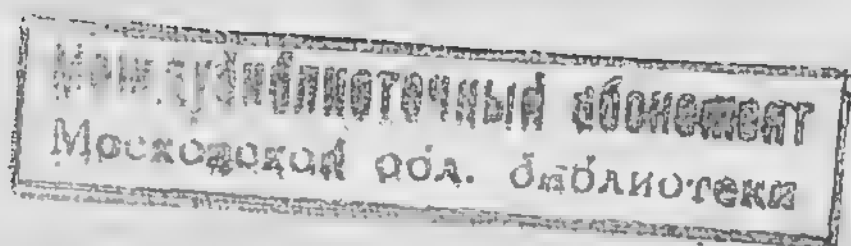 Межбиблиотечный абонемент
Московской обл. библиотеки